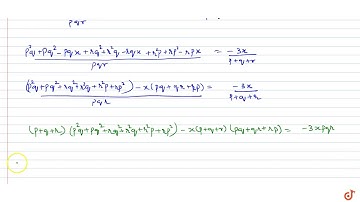 pqr
p²q + pq² - pqx + rq² + r²q - rqx + r²p + rp² - rpx / pqr = -3x / p+q+r
(p²q + pq² + rq² + r²q + r²p + rp²) - x(pq + qr + rp) / pqr = -3x / p+q+r
(p+q+r) (p²q + pq² + rq² + r²q + r²p + rp²) - x(p+q+r) (pq+qr+rp) = -3xpqr